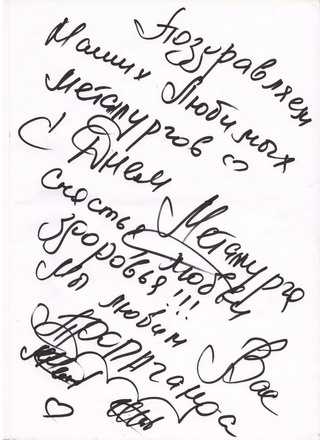 Поздравляем
Наших Любимых
Металургов
С Днем
Металурга
счастья Любви
здоровья!!!
Мы любим Вас
Пропаганда